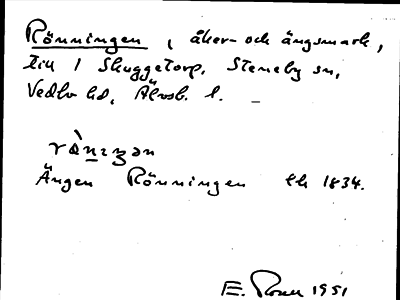 Rönningen, åker- och ängsmark,
till 1 Skuggetorp, Steneby sn,
Vedbo hd, Älvsb. l. –
Ängen Rönningen lh 1834.
E. 1951